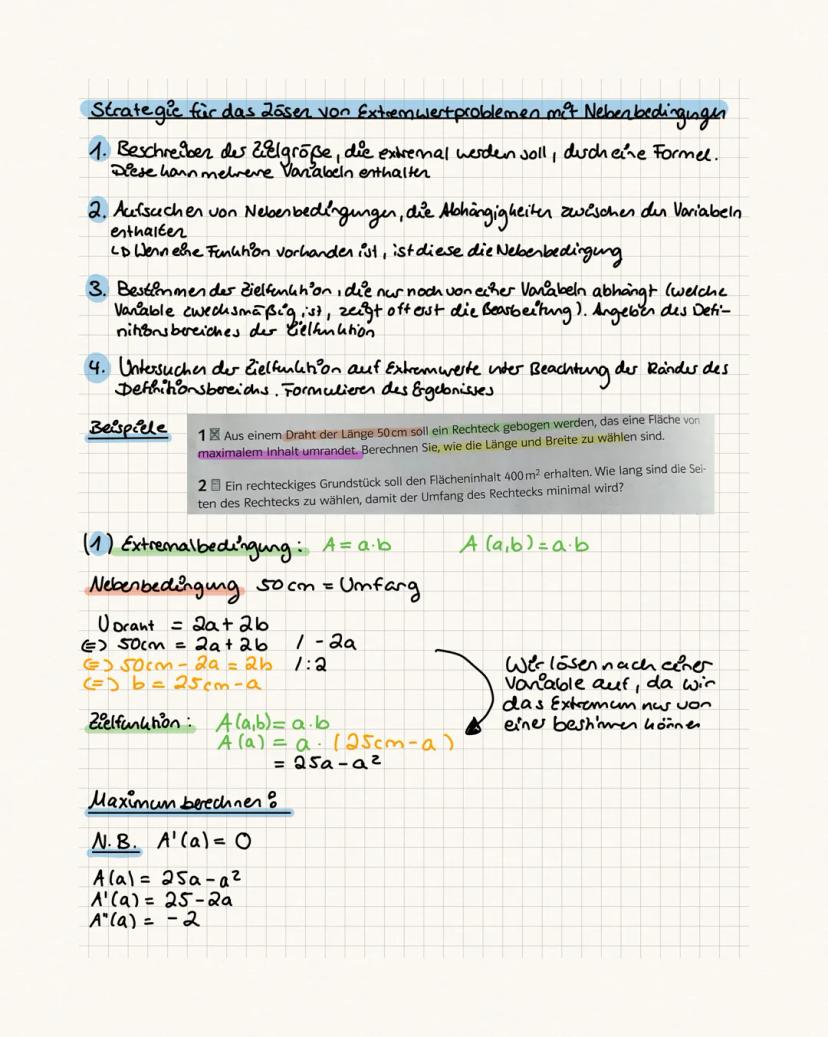 Strategie für das Lösen von Extremwertproblemen mit Nebenbedingungen
1. Beschreiben der Zielgröße, die extremal werden soll, durch eine Formel.
Diese kann mehrere Variabeln enthalten
2. Aufsuchen von Nebenbedingungen, die Abhängigkeiten zwischen den Variabeln
enthalten
↳ Wenn eine Funktion vorhanden ist, ist diese die Nebenbedingung
3. Bestimmen der Zielfunktion, die nur noch von einer Variabeln abhängt (welche
Variable zwecksmäßig ist, zeigt oft erst die Bearbeitung). Angeben des Defi-
nitionsbereiches der Zielfunktion
4. Untersuchen der Zielfunktion auf Extremwerte unter Beachtung der Ränder des
Definitionsbereichs. Formulieren des Ergebnisses
Beispiele
1 Aus einem Draht der Länge 50 cm soll ein Rechteck gebogen werden, das eine Fläche von
maximalem Inhalt umrandet. Berechnen Sie, wie die Länge und Breite zu wählen sind.
2 Ein rechteckiges Grundstück soll den Flächeninhalt 400 m² erhalten. Wie lang sind die Sei-
ten des Rechtecks zu wählen, damit der Umfang des Rechtecks minimal wird?
(1) Extremalbedingung: A = a·b A(a,b) = a·b
Nebenbedingung 50 cm = Umfang
U = 2a + 2b
<=> 50cm = 2a + 2b / - 2a
<=> 50cm - 2a = 2b / :2
<=> b = 25cm - a
Wir lösen nach einer
Variable auf, da wir
das Extremum nur von
einer bestimmen können
Zielfunktion: A(a,b) = a·b
A(a) = a · (25cm - a)
= 25a - a²
Maximum berechnen:
N.B. A'(a) = 0
A(a) = 25a - a²
A'(a) = 25 - 2a
A''(a) = -2